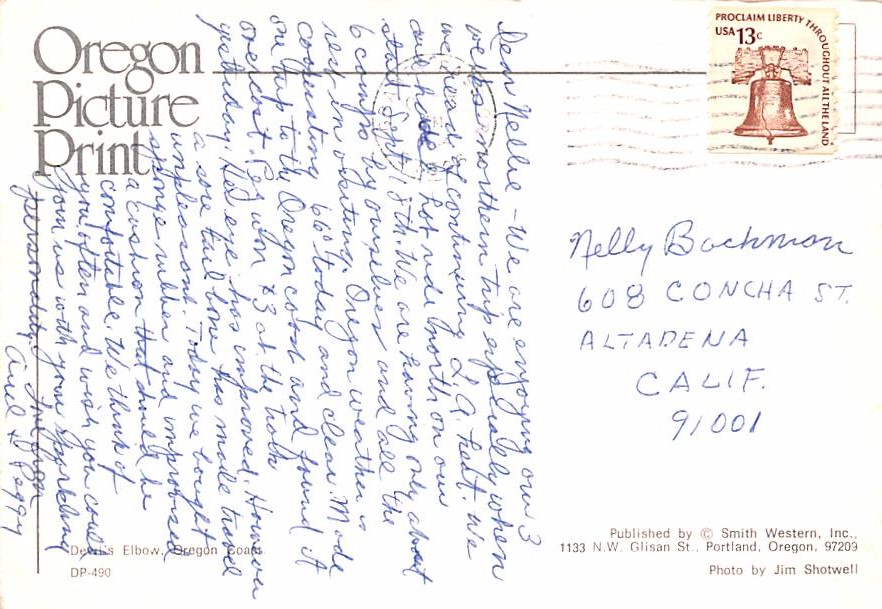 Oregon
Picture
Print
PROCLAIM LIBERTY THROUGHOUT ALL THE LAND
USA 13c
Dear Nellie - We are enjoying our 3
weeks northern trip especially when
we read of continuing L.A. heat. We
and made a hot ride north on our
start Sept 18th. We are having only about
6 comps by ourselves and all the
rest in visiting. Oregon weather is
cooperating 66° today and clear. Made
our trip to the Oregon coast and found it
overcast. Peg won $3 at the track
yesterday. Her eye has improved. However
a sore tail bone has made travel
unpleasant. Today we bought
sponge rubber and improvised
a cushion that should be
comfortable. We think of
you often and wish you could
join us with your sparkling
personality.
Ariel & Peggy
Nelly Bachman
608 CONCHA ST.
ALTADENA
CALIF.
91001
Devil's Elbow, Oregon Coast
DP-490
Published by © Smith Western, Inc.,
1133 N.W. Glisan St., Portland, Oregon, 97209
Photo by Jim Shotwell